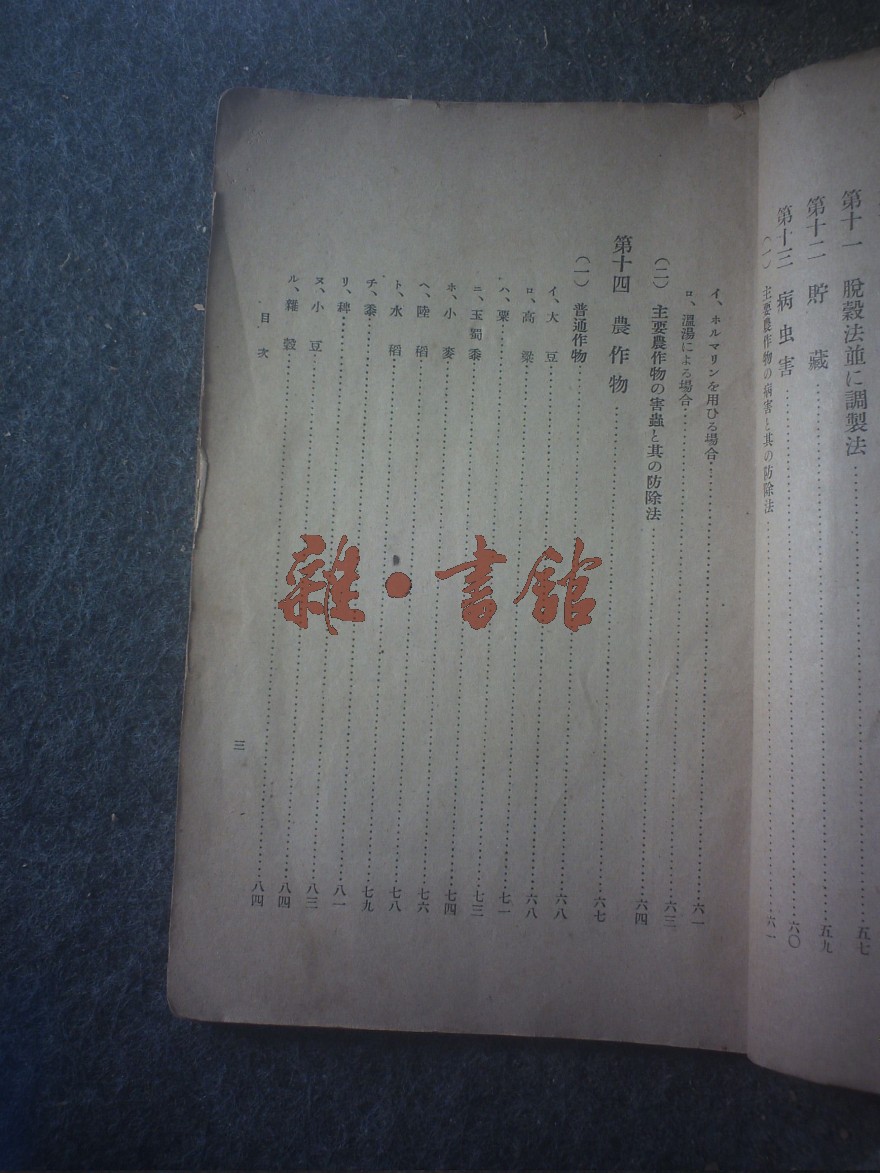 第十一 脫穀法並に調製法……五七
第十二 貯藏……五九
第十三 病虫害……六〇
(一) 主要農作物の病害と其の防除法……六一
イ、ホルマリンを用ひる場合……六一
ロ、溫湯による場合……六三
(二) 主要農作物の害蟲と其の防除法……六四
第十四 農作物……六七
(一) 普通作物……六八
イ、大豆……六八
ロ、高粱……七一
ハ、粟……七三
ニ、玉蜀黍……七四
ホ、小麥……七六
ヘ、陸稻……七八
ト、水稻……七九
チ、黍……八一
リ、稗……八三
ヌ、小豆……八四
ル、雜穀……八四
目次
三
雜・書館